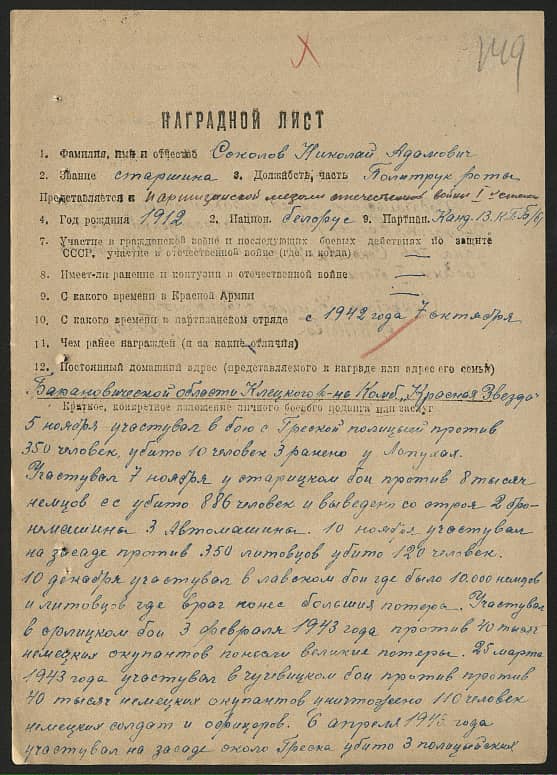 149
НАГРАДНОЙ ЛИСТ
1. Фамилия, имя и отчество Соколов Николай Адамович
2. Звание старшина 3. Должность, часть Политрук роты
Представляется к партизанской медали отечественной войны I степени
4. Год рождния 1912 2. Национ. белорус 9. Партпан. Канд. В.К.П.(б)
7. Участие в гражданской войне и последующих боевых действиях по защите
СССР, участие в отечественной войне (где и когда) —
8. Имеет-ли ранение и контузии в отечественной войне —
9. С какого времени в Красной Армии —
10. С какого времени в партизанском отряде с 1942 года 7 октября
11. Чем ранее награжден (и за какие отличия)
12. Постоянный домашний адрес (представляемого к награде или адрес его семьи)
Барановической области Клецкого р-на Колб. „Красная Звезда"
Краткое, конкретное изложение личного боевого подвига или заслуг
5 ноября участувал в бою с Греской полицыий против
350 человек, убито 10 человек 3 ранено у Лопухах.
Участувал 7 ноября у старицком бои против 8 тысяч
немцов сс убито 886 человек и выведено со строя 2 бро-
немашины 3 Автомашины. 10 ноября участувал
на засаде против 350 литовцов убито 120 человек.
10 декабря участувал в лавском бои где было 10.000 немцов
и литовцов где враг понес большия потера. Участувал
в орлицком бои 3 февраля 1943 года против 40 тысяч
немецких окупантов понесли великие потеры. 25 марта
1943 года участувал в чучевицком бои против против
40 тысяч немецких окупантов уничтожено 110 человек
немецких солдат и офицеров. 6 апреля 1943 года
участувал на засаде около Греска убито 3 полацыйских